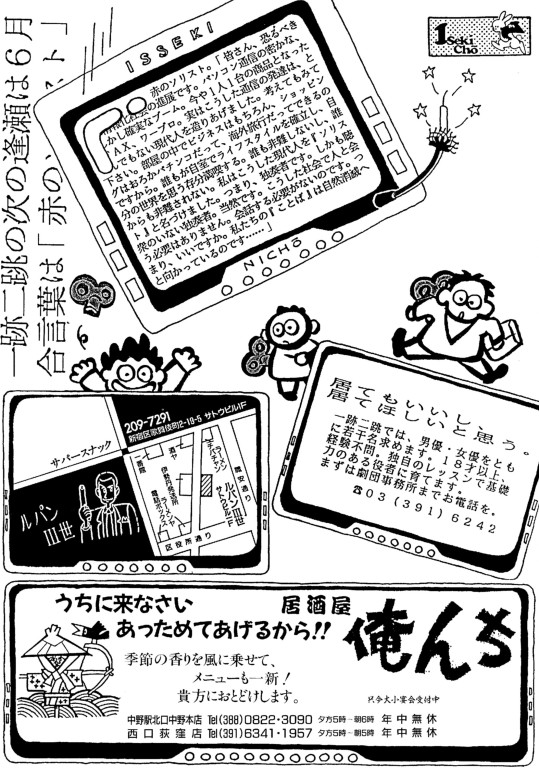 1 Seki Chō
ISSEKI
赤のソリスト。「皆さん、恐るべき
情報化社会の進展です。パソコン通信の密かな、
しかし確実なブーム。今や1人1台の商品となった
FAX、ワープロ。実はこうした通信の発達は、と
んでもない現代人を造りあげました。考えてもみて
下さい。部屋の中でビジネスはもちろん、ショッピン
グはおろかパチンコだって、海外旅行だってできるの
ですから。誰もが自室でライフスタイルを確立し、自
分の世界を思う存分満喫する。誰も非難しないし、誰
からも非難されない。私はこうした現代人を『ソリス
ト』と名づけました。つまり、独奏者です。しかも聴
衆のいない独奏者。当然です。こうした社会で人と会
う必要はありません。会話する必要がないのです。つ
まり、いいですか。私たちの『ことば』は自然消滅へ
と向かっているのです……」
NICHŌ
一跡二跳の次の逢瀬は6月
合言葉は「赤の、
スト」
209-7291
新宿区歌舞伎町2-19-5 サトウビル1F
サパースナック
ルパン
III世
区役所通り
ルパンIII世
サトウビル1F
居てもいいし、
居てほしいと思う。
一跡二跳では、男優・女優をとも
に若干名求めます。18才以上、
経験不問。独自のレッスンで基礎
力のある役者に育てます。
まずは劇団事務所までお電話を。
☎03(391)6242
うちに来なさい
あっためてあげるから!!
居酒屋
俺んち
季節の香りを風に乗せて、
メニューも一新!
貴方におとどけします。
只今大小宴会受付中
中野駅北口中野本店 Tel(388)0822・3090 夕方5時〜朝6時 年中無休
西口荻窪店 Tel(391)6341・1957 夕方5時〜朝5時 年中無休